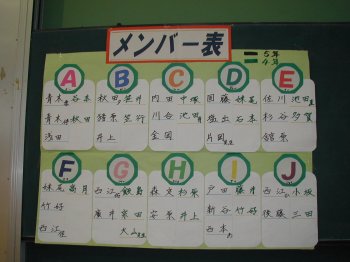 メンバー表
5年
4年
A
B
C
D
E
青木 谷本
青木 秋田
浅田
秋田 笠井
笹原 笠行
井上
内田 中塚
川谷 池田
金岡
国藤 妹尾
盛出 石本
片岡
佐川 池田
杉谷 多賀
舘原
F
G
H
I
J
妹尾 高月
竹好
西江
西江 飯島
廣井 京田
大山
森定 杉原
安原 井上
戸田 藤井
新谷 竹好
西本
西江 小坂
後藤 三田